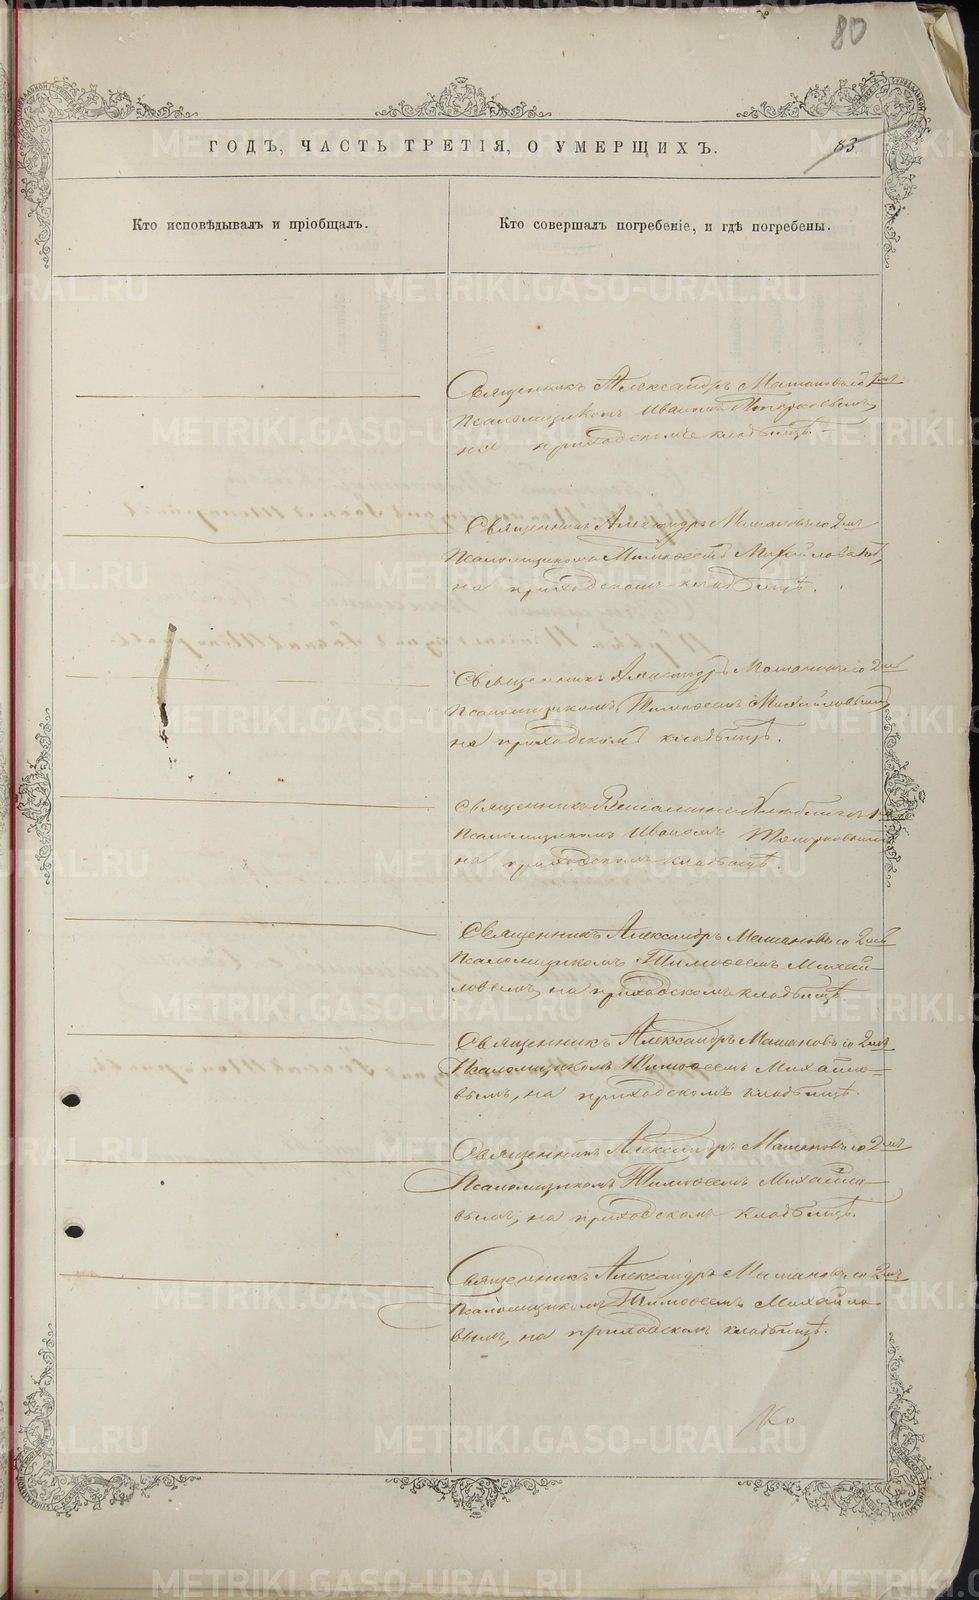 80
ГОДЪ, ЧАСТЬ ТРЕТІЯ, О УМЕРШИХЪ.
83
Кто исповѣдывалъ и пріобщалъ.
Кто совершалъ погребеніе, и гдѣ погребены.
Священникъ Александръ Машановъ со
Псаломщикомъ Иваномъ
на приходскомъ кладбищѣ.
Священникъ Александръ Машановъ со 2мъ
Псаломщикомъ Тимофеемъ
на приходскомъ кладбищѣ.
Священникъ Александръ Машановъ со 2мъ
Псаломщикомъ Тимофеемъ Михайловымъ
на приходскомъ кладбищѣ.
Священникъ
Псаломщикомъ Иваномъ
на приходскомъ кладбищѣ.
Священникъ Александръ Машановъ со 2мъ
Псаломщикомъ Тимофеемъ Михай-
ловымъ, на приходскомъ кладбищѣ.
Священникъ Александръ Машановъ со 2мъ
Псаломщикомъ Тимофеемъ Михайло-
вымъ, на приходскомъ кладбищѣ.
Священникъ Александръ Машановъ со 2мъ
Псаломщикомъ Тимофеемъ Михайло-
вымъ, на приходскомъ кладбищѣ.
Священникъ Александръ Машановъ со 2мъ
Псаломщикомъ Тимофеемъ Михайло-
вымъ, на приходскомъ кладбищѣ.
METRIKI.GASO-URAL.RU